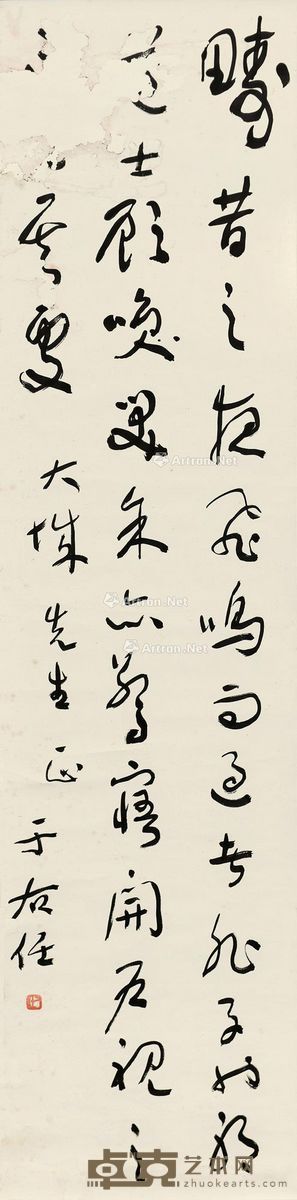 疇昔之夜飛鳴而過者非子也耶
道士顧笑余亦驚寤開戶視之
其處
大城先生正
于右任
Artron.Net
Artron.Net
Artron.Net
卓克艺术网
zhuokearts.com